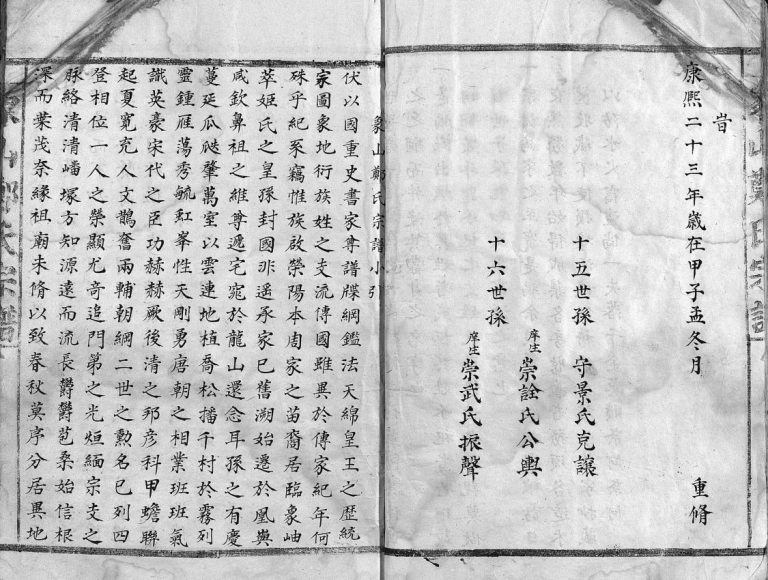 旹
康熙二十三年歲在甲子孟冬月 重脩
十五世孫 守景氏克讓
庠生 崇詮氏公輿
十六世孫
庠生 崇武氏振聲
象山鄭氏宗譜小引
伏以國重史書家尊譜牒綱鑑法天綿皇王之歷統
家圖象地衍族姓之支流傳國雖異於傳家紀年何
殊乎紀系竊惟族啟榮陽本周家之苗裔居臨象岫
萃姬氏之皇孫封國非遥承家已舊溯始遷於凰輿
咸欽鼻祖之維尊遞宅窕於龍山還念耳孫之有慶
蔓延瓜瓞肇萬室以雲連地植喬松播千村於霧列
靈鍾雁蕩秀毓虹峯性天剛勇唐朝之相業班班氣
識英豪宋代之臣功赫赫厥後清之邦彥科甲蟾聯
起夏寬充人文鵲奮兩輔朝綱二世之勲名已列四
登相位一人之榮顯尤奇追門第之光烜緬宗支之
脉絡清清嶓塚方知源遠而流長鬱鬱苞桑始信根
深而葉茂奈緣祖廟未脩以致春秋莫序分居異地